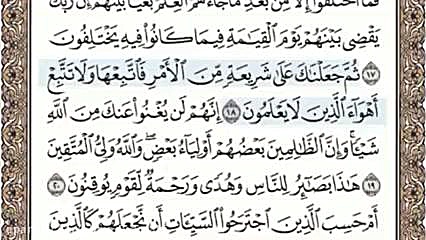 فَمَا ٱخْتَلَفُوٓا۟ إِلَّا مِنۢ بَعْدِ مَا جَآءَهُمُ ٱلْعِلْمُ بَغْيًۢا بَيْنَهُمْ إِنَّ رَبَّكَ
يَقْضِى بَيْنَهُمْ يَوْمَ ٱلْقِيَٰمَةِ فِيمَا كَانُوا۟ فِيهِ يَخْتَلِفُونَ
١٧ ثُمَّ جَعَلْنَٰكَ عَلَىٰ شَرِيعَةٍ مِّنَ ٱلْأَمْرِ فَٱتَّبِعْهَا وَلَا تَتَّبِعْ
أَهْوَآءَ ٱلَّذِينَ لَا يَعْلَمُونَ ١٨ إِنَّهُمْ لَن يُغْنُوا۟ عَنكَ مِنَ ٱللَّهِ
شَيْـًٔا وَإِنَّ ٱلظَّٰلِمِينَ بَعْضُهُمْ أَوْلِيَآءُ بَعْضٍ وَٱللَّهُ وَلِىُّ ٱلْمُتَّقِينَ
١٩ هَٰذَا بَصَٰٓئِرُ لِلنَّاسِ وَهُدًى وَرَحْمَةٌ لِّقَوْمٍ يُوقِنُونَ ٢٠
أَمْ حَسِبَ ٱلَّذِينَ ٱجْتَرَحُوا۟ ٱلسَّيِّـَٔاتِ أَن نَّجْعَلَهُمْ كَٱلَّذِينَ